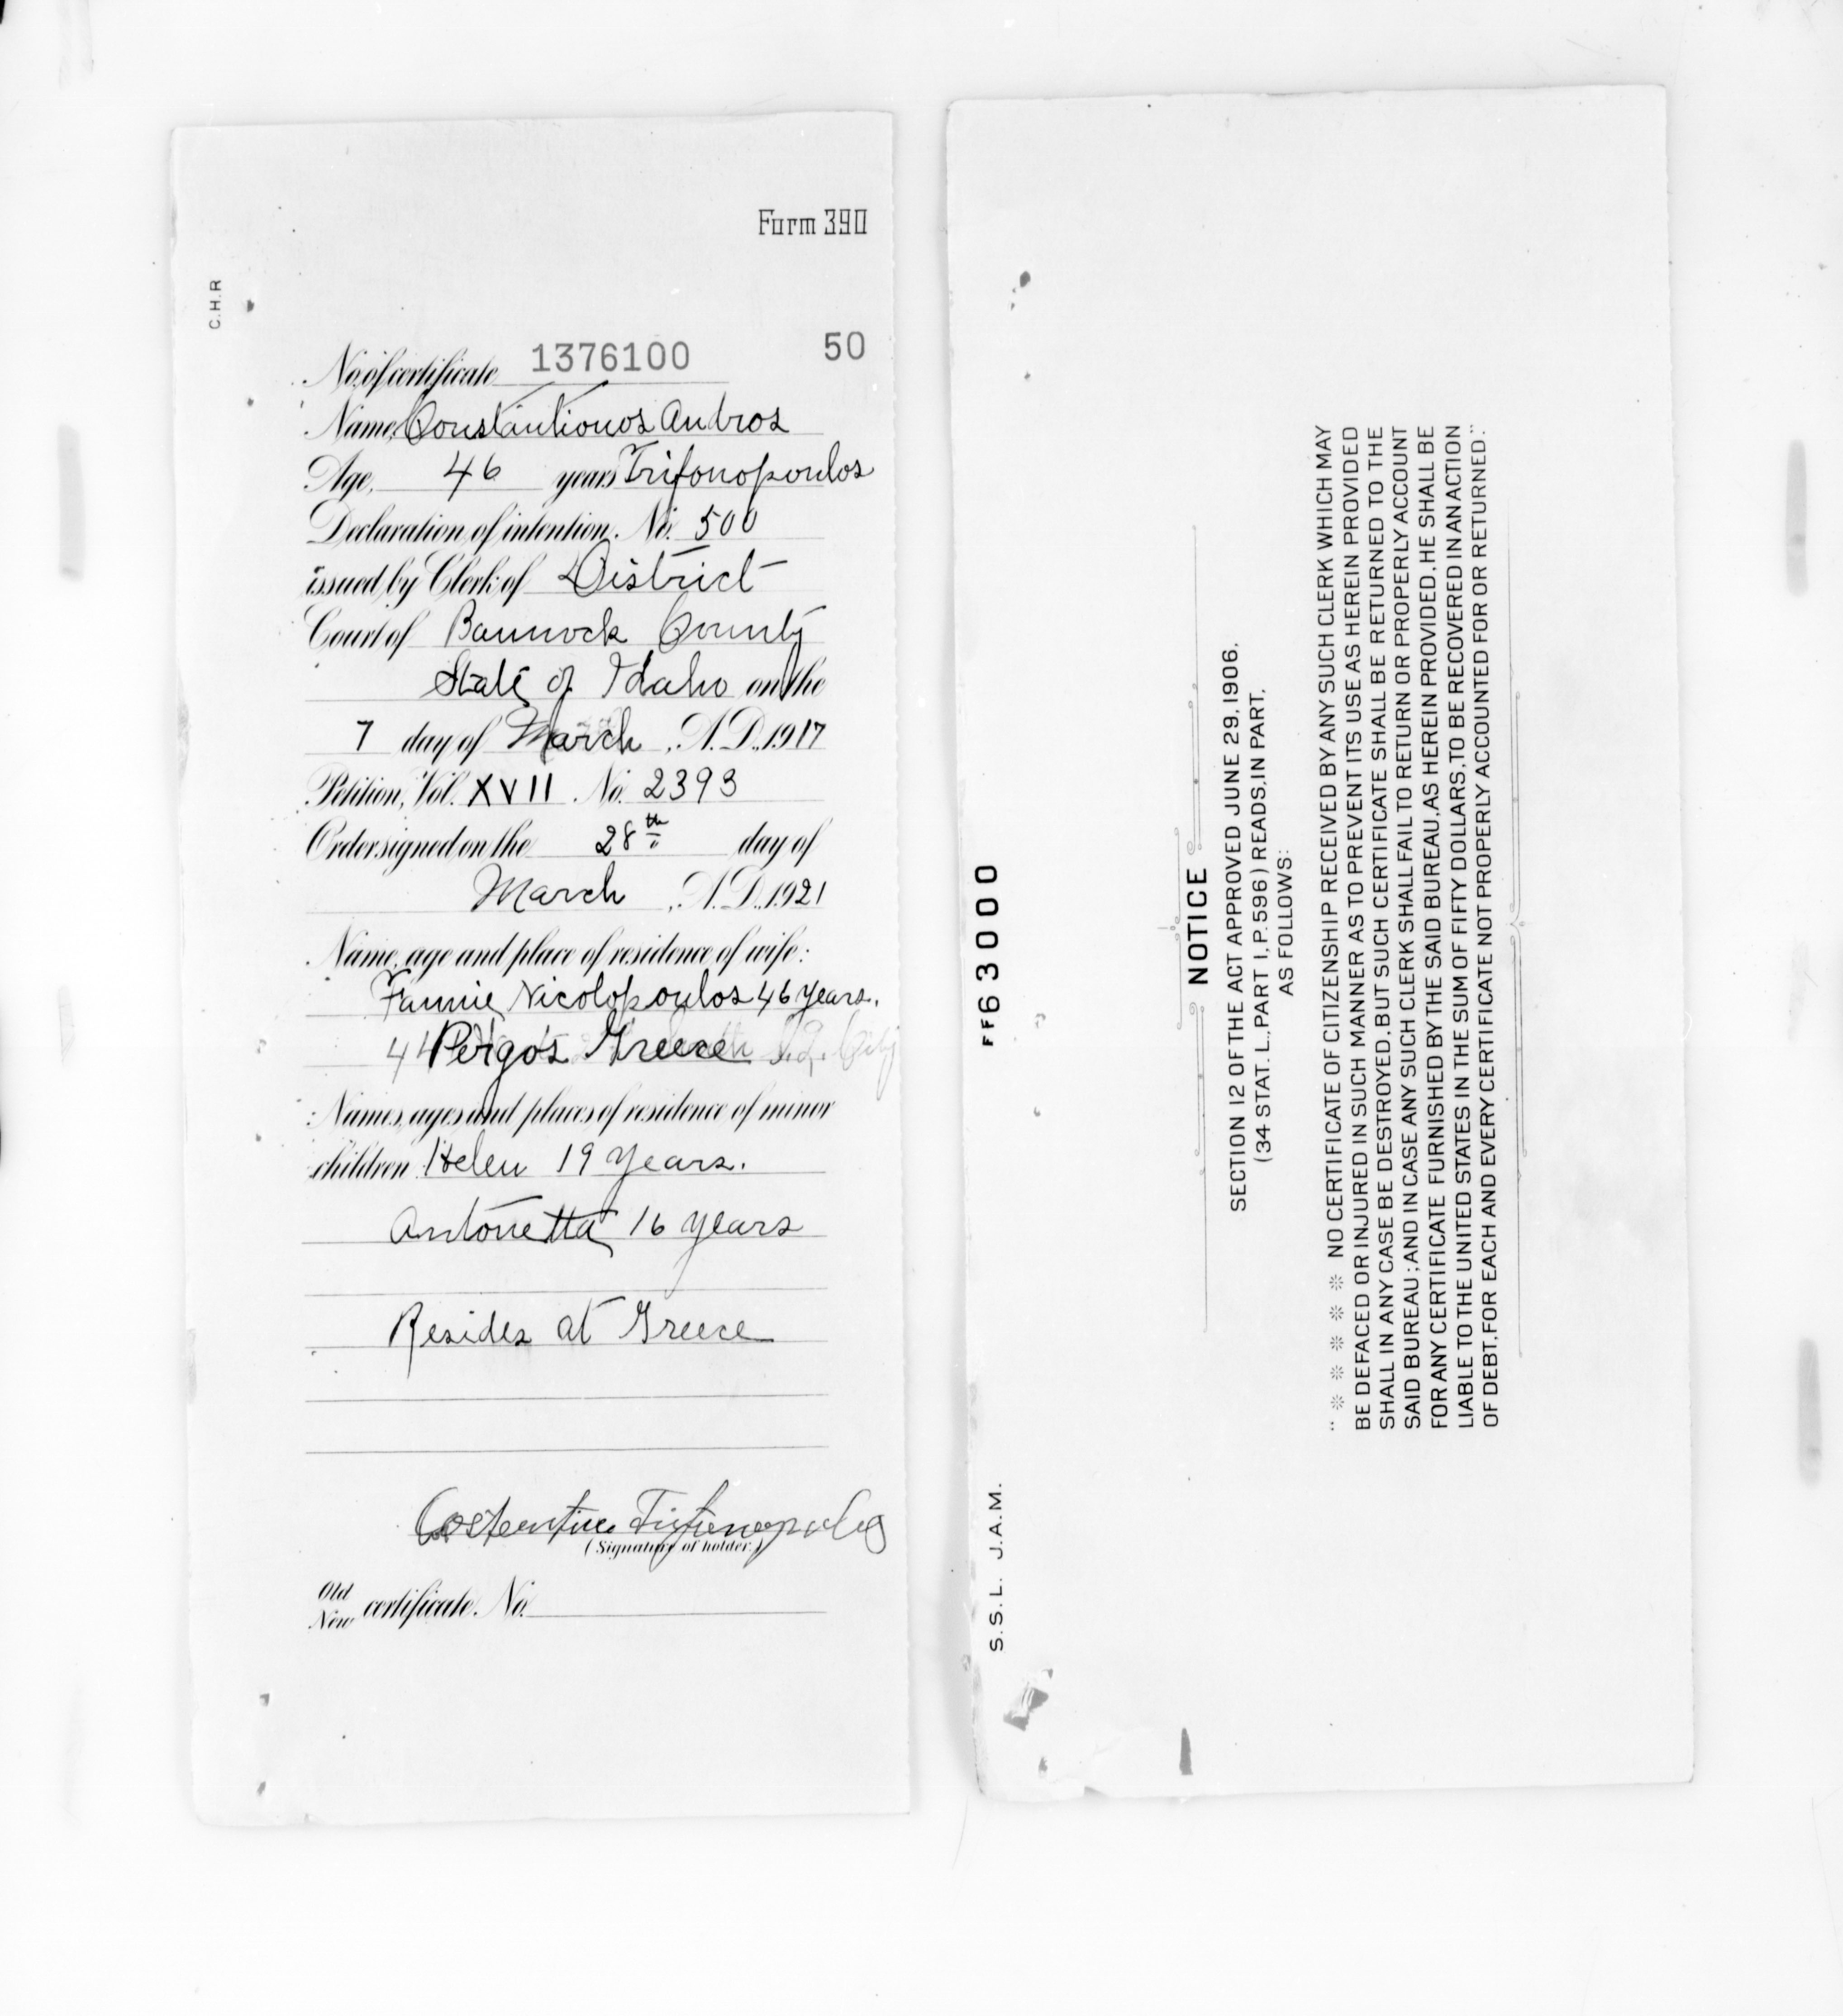 Form 390
C.H.R
No. of certificate 1376100 50
Name, Constantionos Andros
Age, 46 years Trifonopoulos
Declaration of intention. No. 500
issued by Clerk of District
Court of Bannock County
State of Idaho on the
7 day of March, A.D., 1917
Petition, Vol. XVII. No. 2393
Order signed on the 28th day of
March, A.D., 1921
Name, age and place of residence of wife:
Fannie Nicolopoulos 46 years.
Pergos Greece
Names, ages and places of residence of minor
children Helen 19 years.
Antonetta 16 years
Resides at Greece
(Signature of holder.)
Old
New certificate. No.
FF63000
S.S.L. J.A.M.
NOTICE
SECTION 12 OF THE ACT APPROVED JUNE 29, 1906,
(34 STAT. L., PART I, P. 596) READS, IN PART,
AS FOLLOWS:
"* * * * * NO CERTIFICATE OF CITIZENSHIP RECEIVED BY ANY SUCH CLERK WHICH MAY
BE DEFACED OR INJURED IN SUCH MANNER AS TO PREVENT ITS USE AS HEREIN PROVIDED
SHALL IN ANY CASE BE DESTROYED, BUT SUCH CERTIFICATE SHALL BE RETURNED TO THE
SAID BUREAU; AND IN CASE ANY SUCH CLERK SHALL FAIL TO RETURN OR PROPERLY ACCOUNT
FOR ANY CERTIFICATE FURNISHED BY THE SAID BUREAU, AS HEREIN PROVIDED, HE SHALL BE
LIABLE TO THE UNITED STATES IN THE SUM OF FIFTY DOLLARS, TO BE RECOVERED IN AN ACTION
OF DEBT, FOR EACH AND EVERY CERTIFICATE NOT PROPERLY ACCOUNTED FOR OR RETURNED."